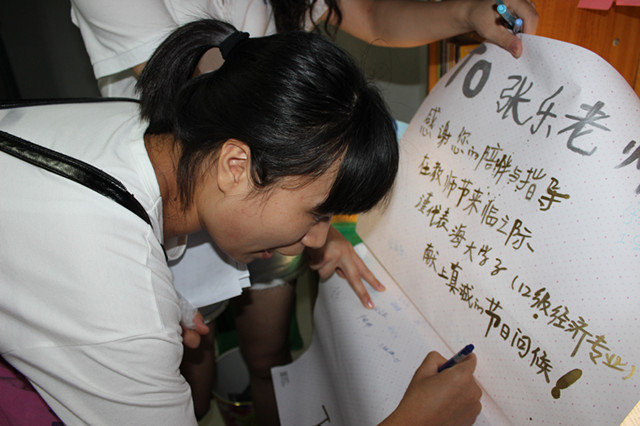 TO 张乐老师
感谢您的陪伴与指导
在教师节来临之际
谨代表海大学子(12级经济专业)
献上真诚的节日问候!